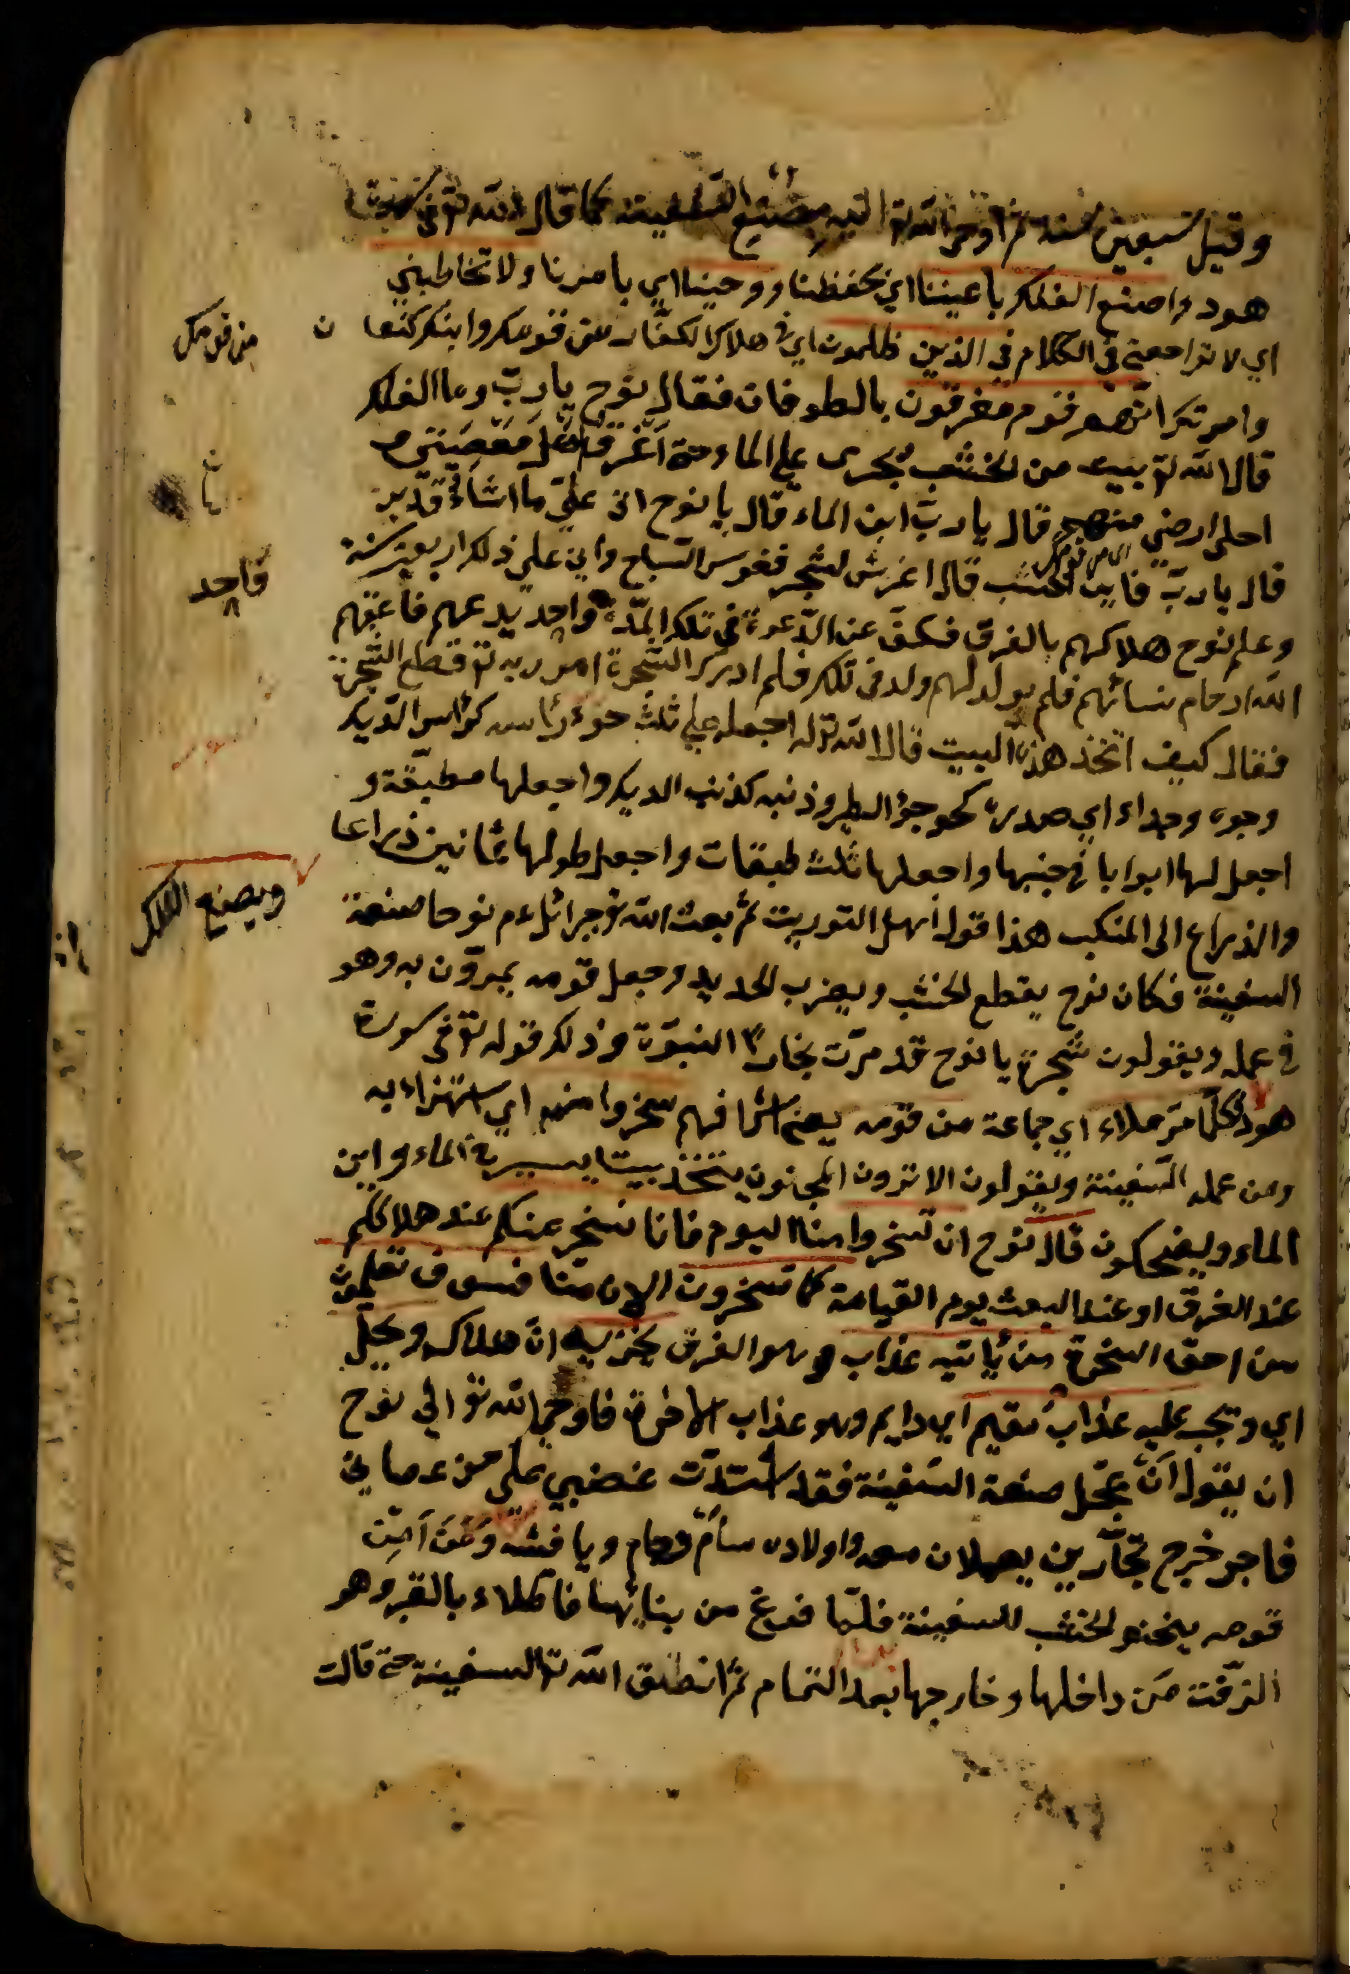 وقيل سبعين سنة ثم اوحى الله تع اليه بصنع السفينة كما قال الله تع في سورة
هود واصنع الفلك باعيننا اي بحفظنا ووحينا اي بامرنا ولا تخاطبني
اي لا تراجعني في الكلام في الذين ظلموا اي في هلاك الكفار من قومك وابنك كنعان
من قومك
وامرتك انهم قوم مغرقون بالطوفان فقال نوح يا رب وما الفلك
قال الله تع بيت من الخشب يجرى على الماء حتى اغرق اهل معصيتي و
اخلى ارضي منهم قال يا رب اين الماء قال يا نوح اني على ما اشاء قدير
قال يا رب فاين الخشب قال اغرس الشجر فغرس الساج واتى على ذلك اربعين سنة
وعلم نوح هلاكهم بالغرق فكف عن الدعوة في تلك المدة واحد يدعهم فاعقم
فاحد
الله ارحام نسائهم فلم يولد لهم ولد في تلك فلم ادرك الشجرة امر ربه تع قطع الشجرة
فقال كيف اتخذ هذه البيت قال الله تع له اجعله على ثلث رأسه كرأس الديك
وجوء وجداء اي صدره كجوجؤ الطير وذنبه كذنب الديك واجعلها مطبقة و
اجعل لها ابوابا في جنبها واجعلها ثلث طبقات واجعل طولها ثمانين ذراعا
والذراع الى المنكب هذا قول اهل التوريت ثم بعث الله تع جبرائل ءم نوحا صنعة
ويصنع الفلك
السفينة فكان نوح يقطع الخشب ويضرب الحديد وجعل قومه يمرون به وهو
في عمله ويقولون يا نوح قد صرت نجارا النبوة وذلك قوله تع في سورة
هود كلما مر ملاء اي جماعة من قومه يعني اشرافهم سخروا منه اي استهزاء به
ومن عمله السفينة ويقولون الا ترون المجنون يتخذ بيتا يسير به الماء واين
الماء ويضحكون قال نوح ان تسخروا منا اليوم فانا نسخر منكم عند هلاككم
عند الغرق او عند البعث يوم القيامة كما تسخرون الان منا فسوف تعلمون
من احق السخرة من يأتيه عذاب وهو الغرق يخزيه ان هلاك ويحل
اي وتجب عليه عذاب مقيم اي دايم وهو عذاب الاخرة فاوحى الله تع الى نوح
ان يقول ان عجل صنعة السفينة فقد اشتدت غضبي على من عصاني
فاجر خرج نجارين يعملان معه واولاده سام وحام ويافث ومن آمن
قومه ينحتو الخشب للسفينة فلما فرغ من بنائها فاطلاء بالقير وهو
الزفت من داخلها وخارجها بعد التمام ثم انطلق الله تع السفينة حتى قالت